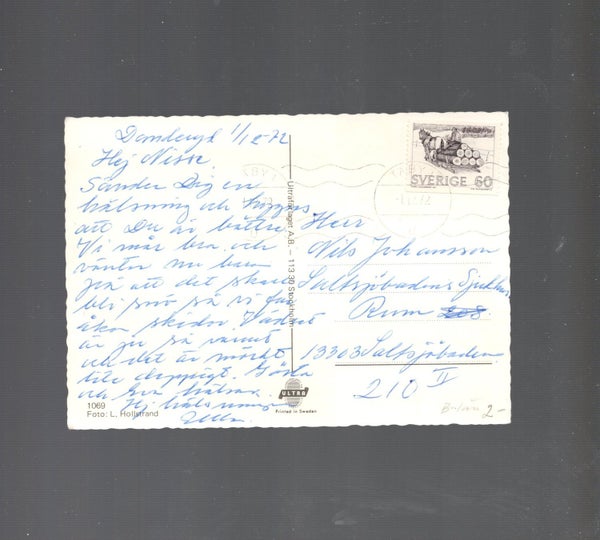 1/12-72
Hej Nisse.
Sänder Dig en
hälsning och hoppas
att Du är bättre
Vi mår bra och
väntar nu bara
på att det skall
bli snö så vi får
åka skidor. Vädret
är ju så varmt
och det är mörkt
lite Gösta
och hälsar.
Hej hälsningar
1069
Foto: L, Hollstrand
Ultraförlaget A.B. – 113 30 Stockholm
ULTRA
Printed in Sweden
SVERIGE 60
Herr
Nils Johansson
Saltsjöbadens Sjukhus
Rum
13303 Saltsjöbaden
210 II
2-